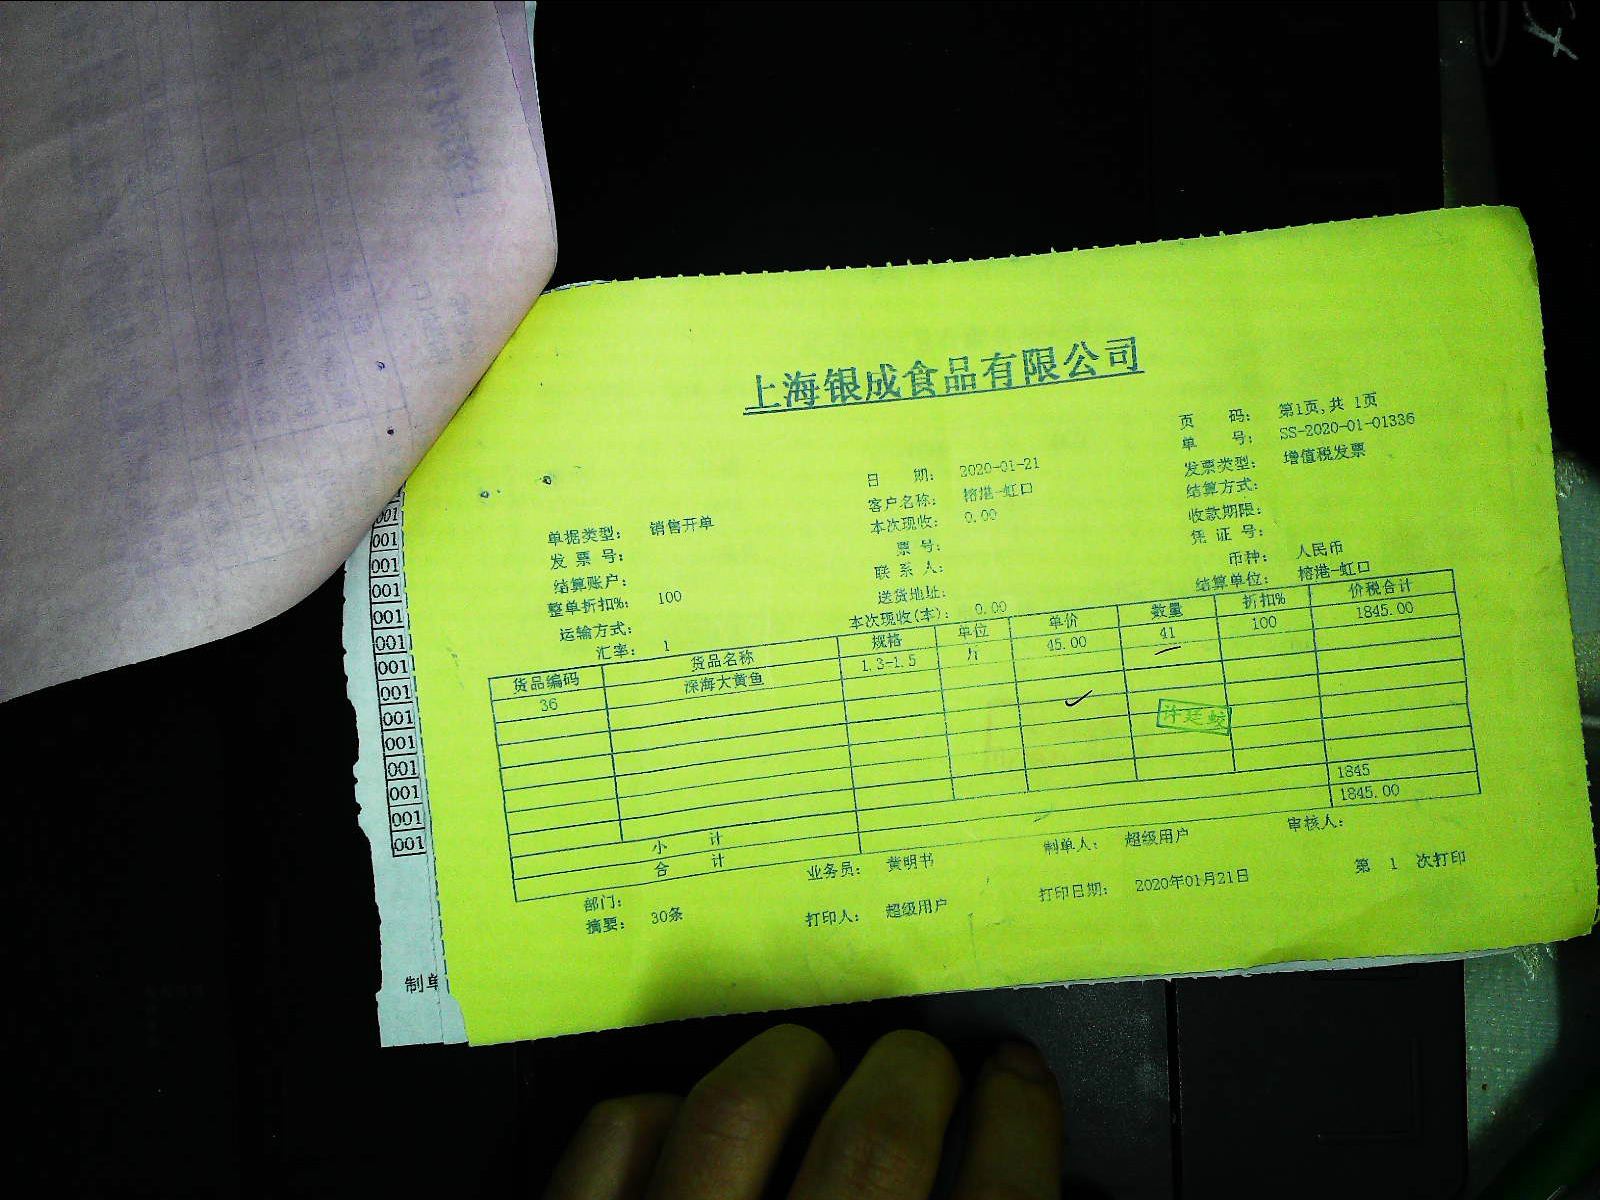 上海银成食品有限公司
页 码: 第1页,共 1页
单 号: SS-2020-01-01336
日 期: 2020-01-21
发票类型: 增值税发票
客户名称: 榕港-虹口
结算方式:
单据类型: 销售开单
本次现收: 0.00
收款期限:
发 票 号:
票 号:
凭 证 号:
结算账户:
联 系 人:
币种: 人民币
整单折扣%: 100
送货地址:
结算单位: 榕港-虹口
运输方式:
本次现收(本): 0.00
汇率: 1
货品编码 货品名称 规格 单位 单价 数量 折扣% 价税合计
36 深海大黄鱼 1.3-1.5 斤 45.00 41 100 1845.00
许廷蛟
小 计 1845
合 计 1845.00
部门: 业务员: 黄明书 制单人: 超级用户 审核人:
摘要: 30条 打印人: 超级用户 打印日期: 2020年01月21日 第 1 次打印
001
001
001
001
001
001
001
001
001
001
001
001
001
001
制单